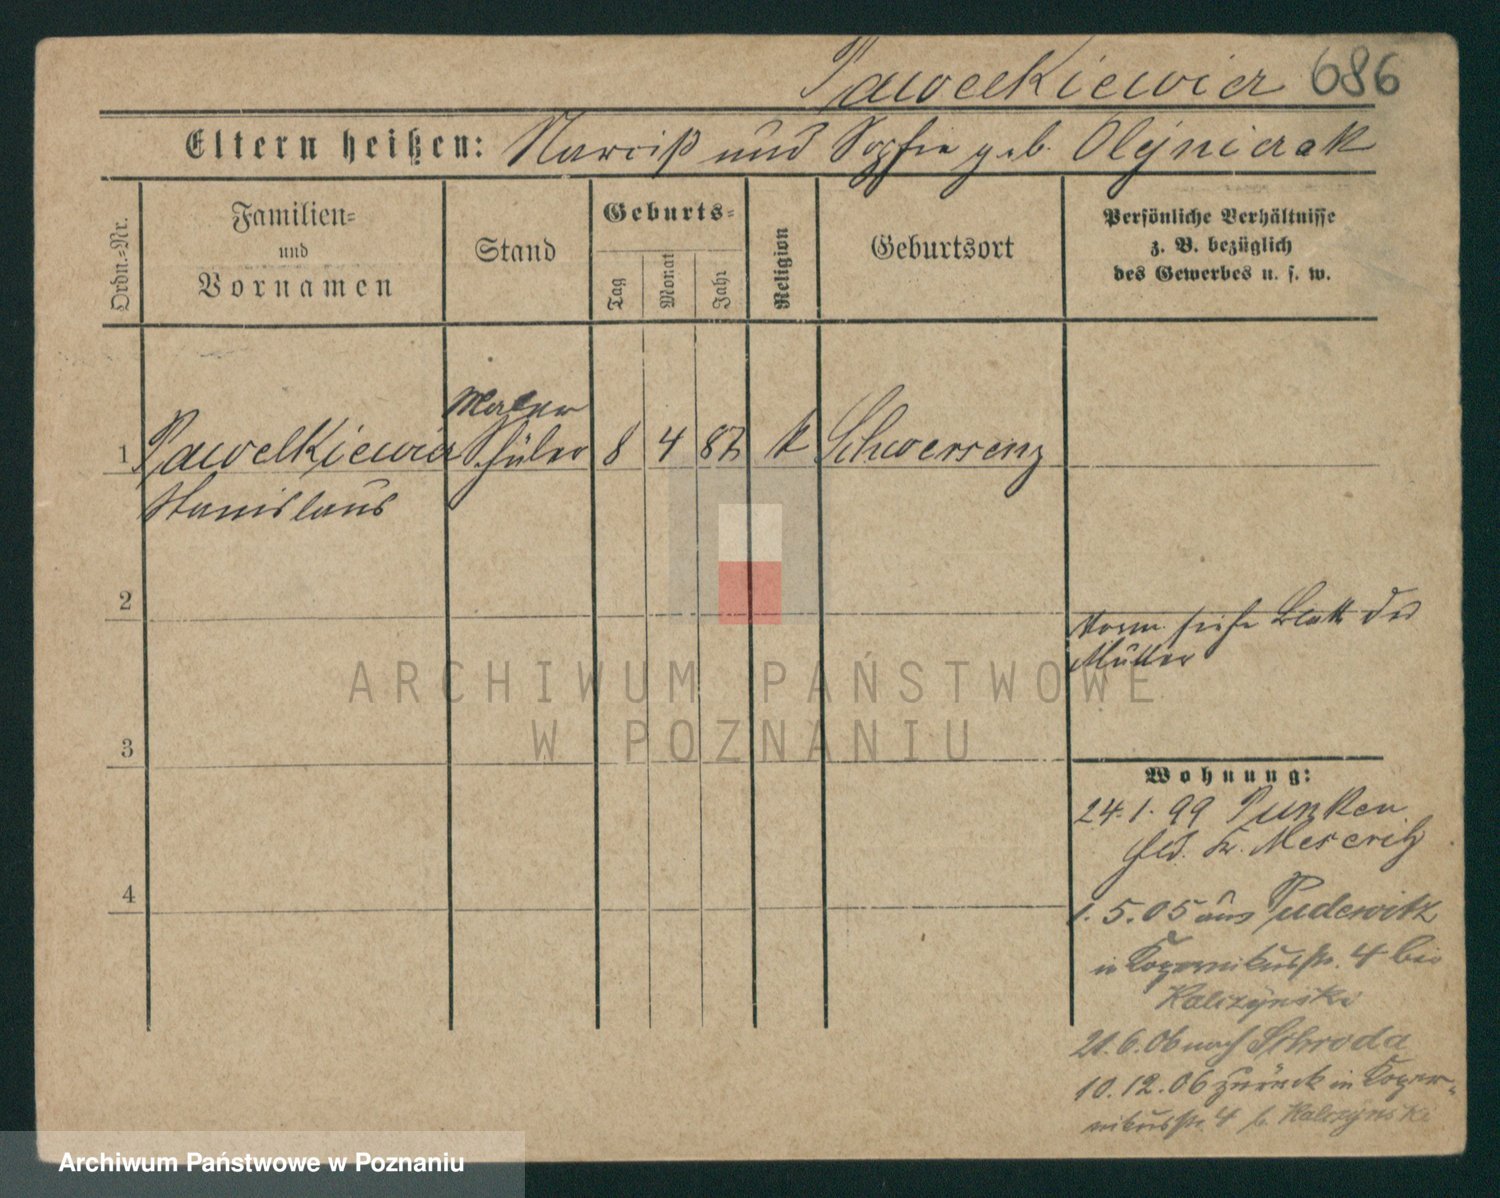 Pawelkiewicz 686
Eltern heißen: Narciß und Sophie geb. Olejniczak
Ordn.-Nr.
Familien-
und
Vornamen
Stand
Geburts-
Tag
Monat
Jahr
Religion
Geburtsort
Persönliche Verhältnisse
z. B. bezüglich
des Gewerbes u. s. w.
Maler
1 Pawelkiewicz Schüler 8 4 87 k Schwersenz
Stanislaus
2
Vorm. siehe Blatt der
Mutter
ARCHIWUM PAŃSTWOWE
W POZNANIU
3
Wohnung:
24.1.99
Kr. Meseritz
4
1.5.05 aus Pudewitz
in Kopernikusstr. 4 bei
Kalczynski
21.6.06 nach Schroda
10.12.06 zurück in Koper-
nikusstr. 4 b. Kalczynski
Archiwum Państwowe w Poznaniu